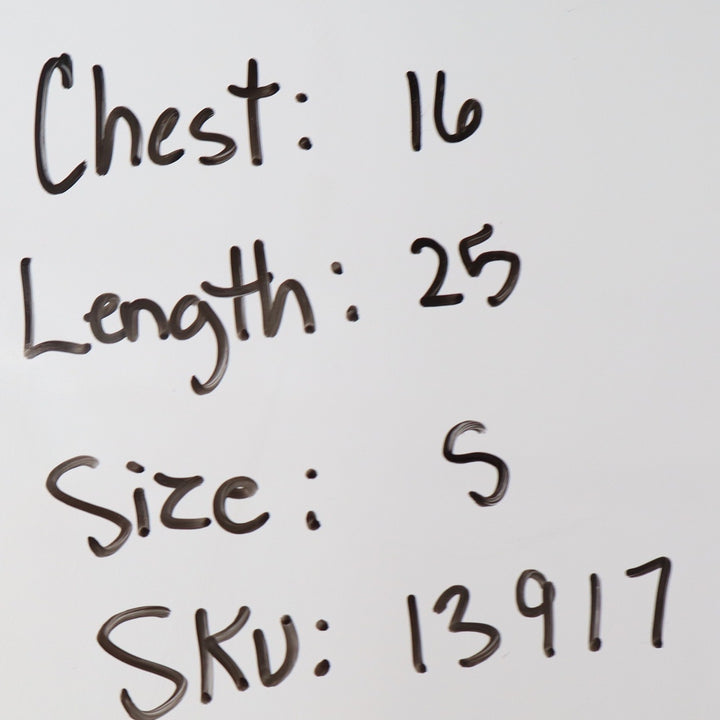 Chest: 16
Length: 25
Size: S
SKU: 13917